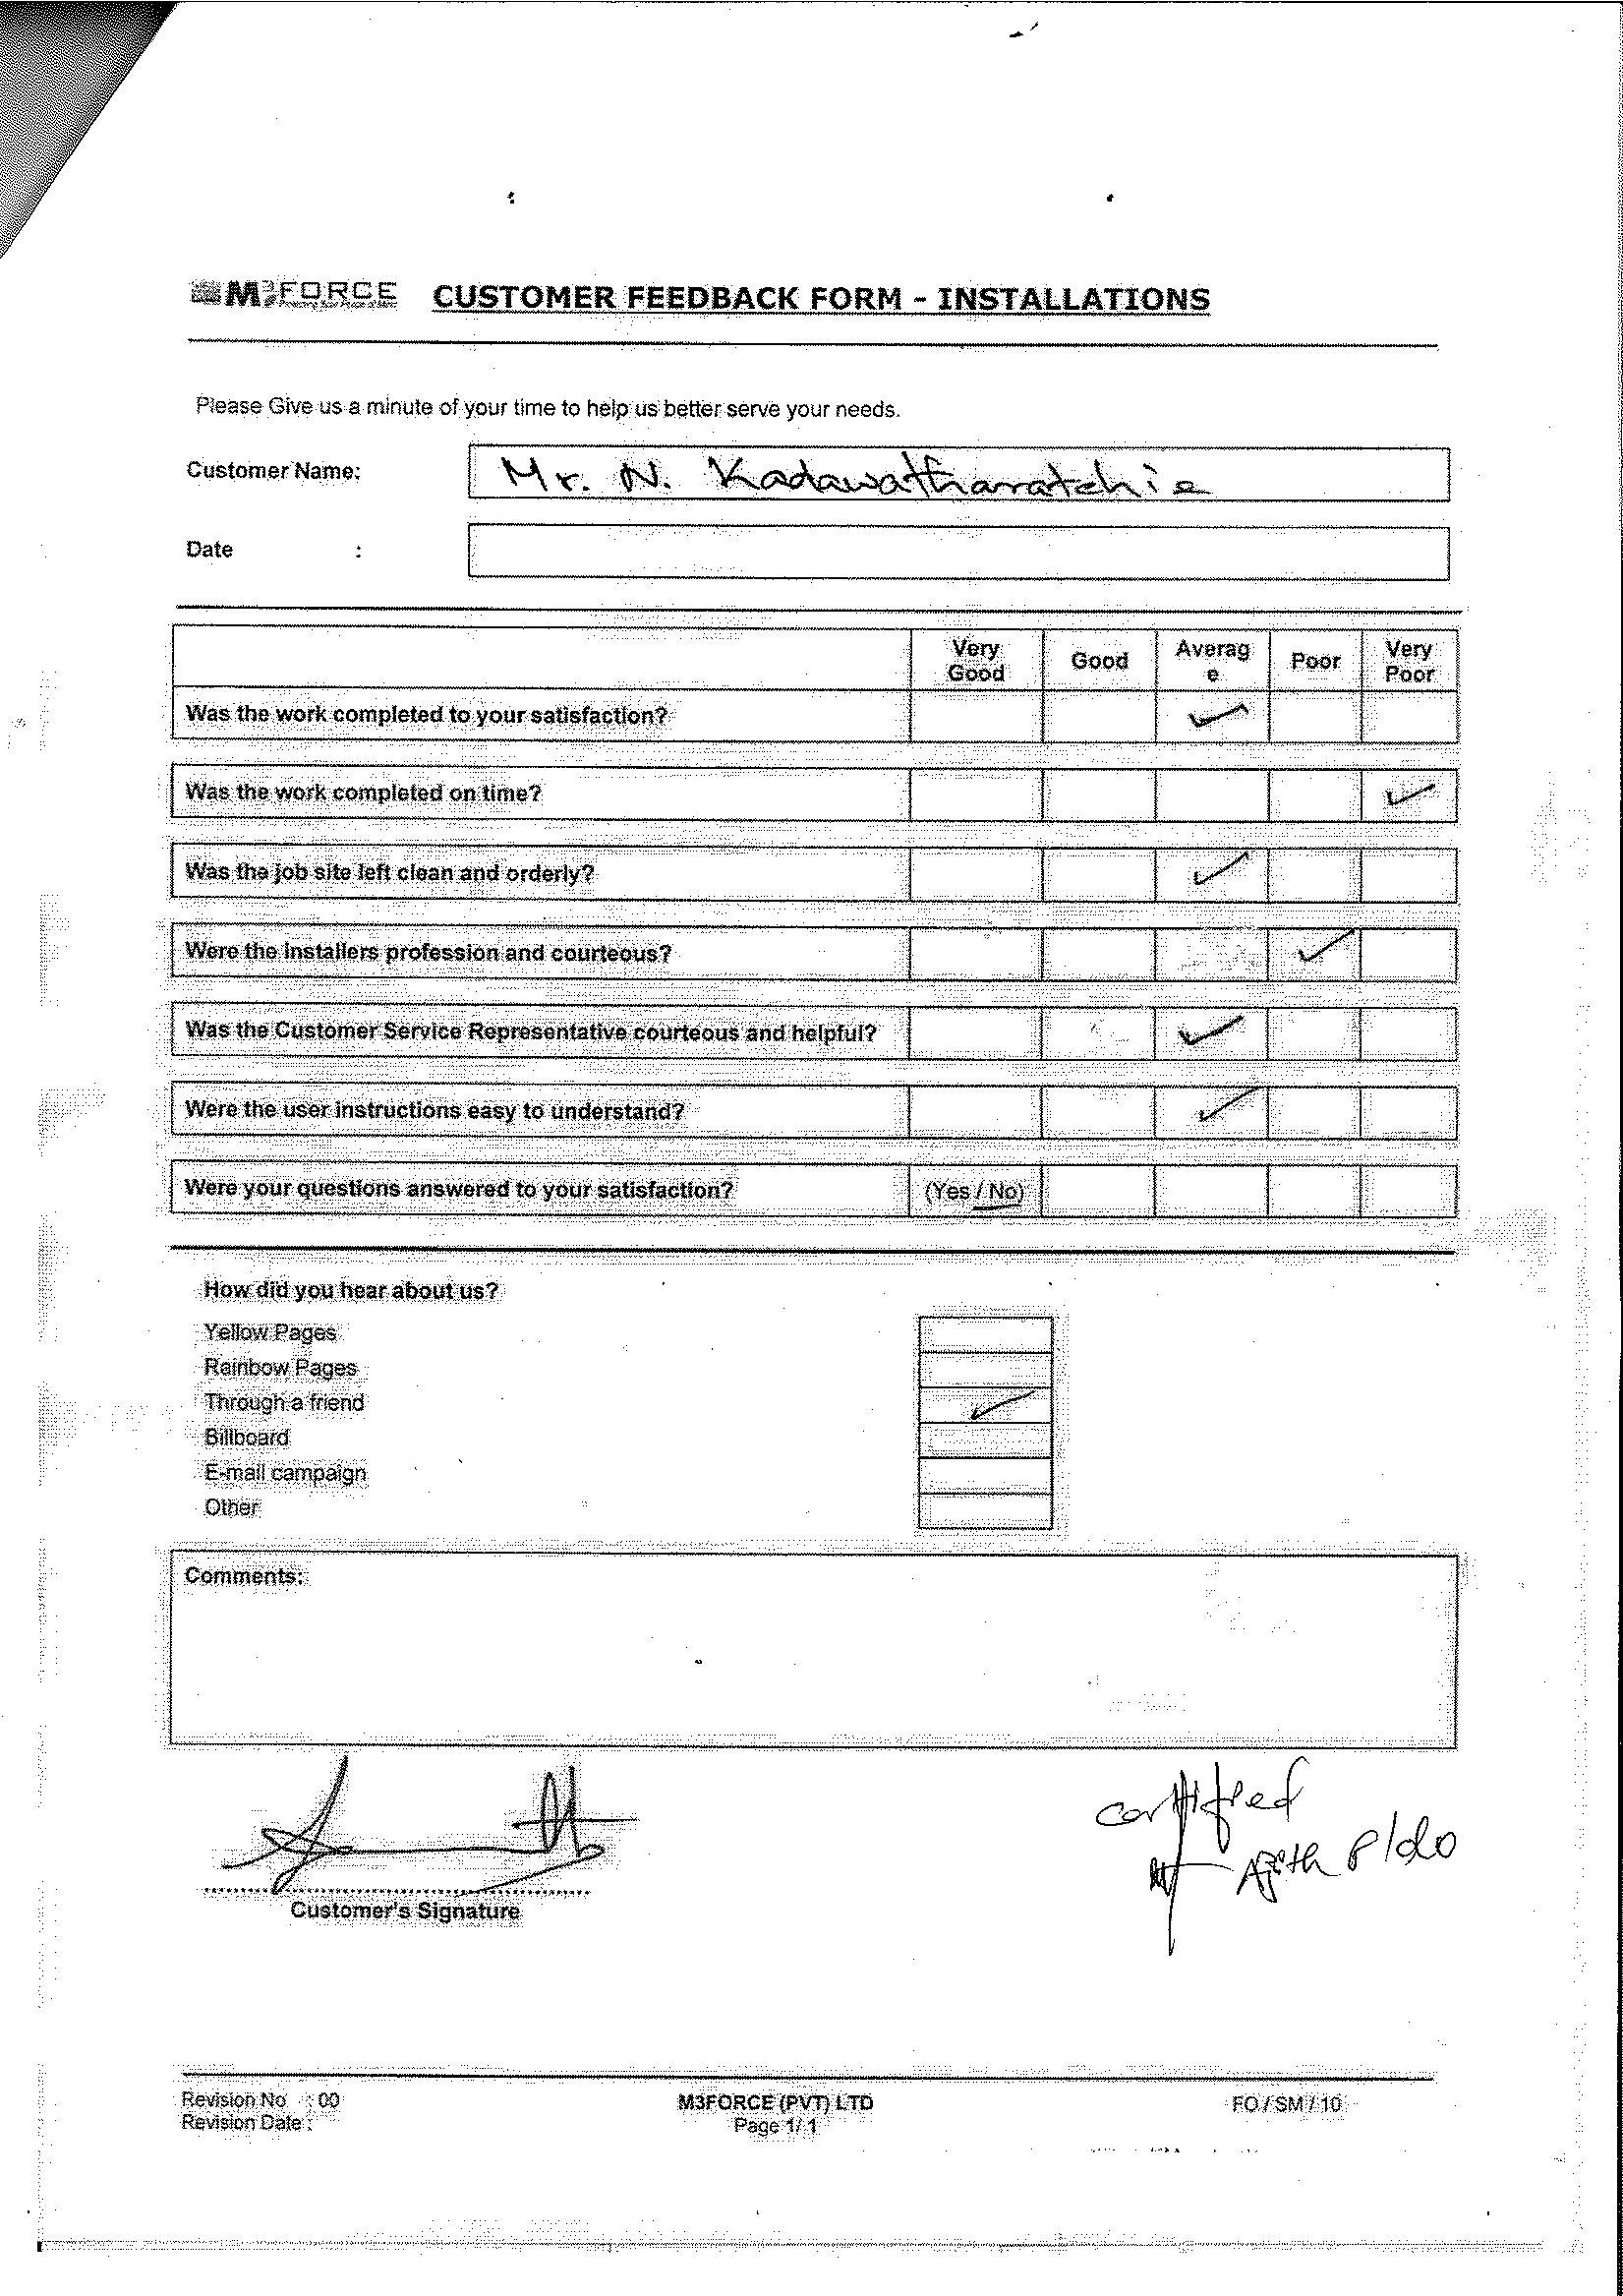 M³FORCE CUSTOMER FEEDBACK FORM - INSTALLATIONS
Please Give us a minute of your time to help us better serve your needs.
Customer Name: Mr. N. Kadawatharatchie
Date :
Very Good Good Averag e Poor Very Poor
Was the work completed to your satisfaction? ✓
Was the work completed on time? ✓
Was the job site left clean and orderly? ✓
Were the installers profession and courteous? ✓
Was the Customer Service Representative courteous and helpful? ✓
Were the user instructions easy to understand? ✓
Were your questions answered to your satisfaction? (Yes / No)
How did you hear about us?
Yellow Pages
Rainbow Pages
Through a friend ✓
Billboard
E-mail campaign
Other
Comments:
Ajith
Customer's Signature
Revision No : 00 M3FORCE (PVT) LTD FO / SM / 10
Revision Date : Page 1/ 1